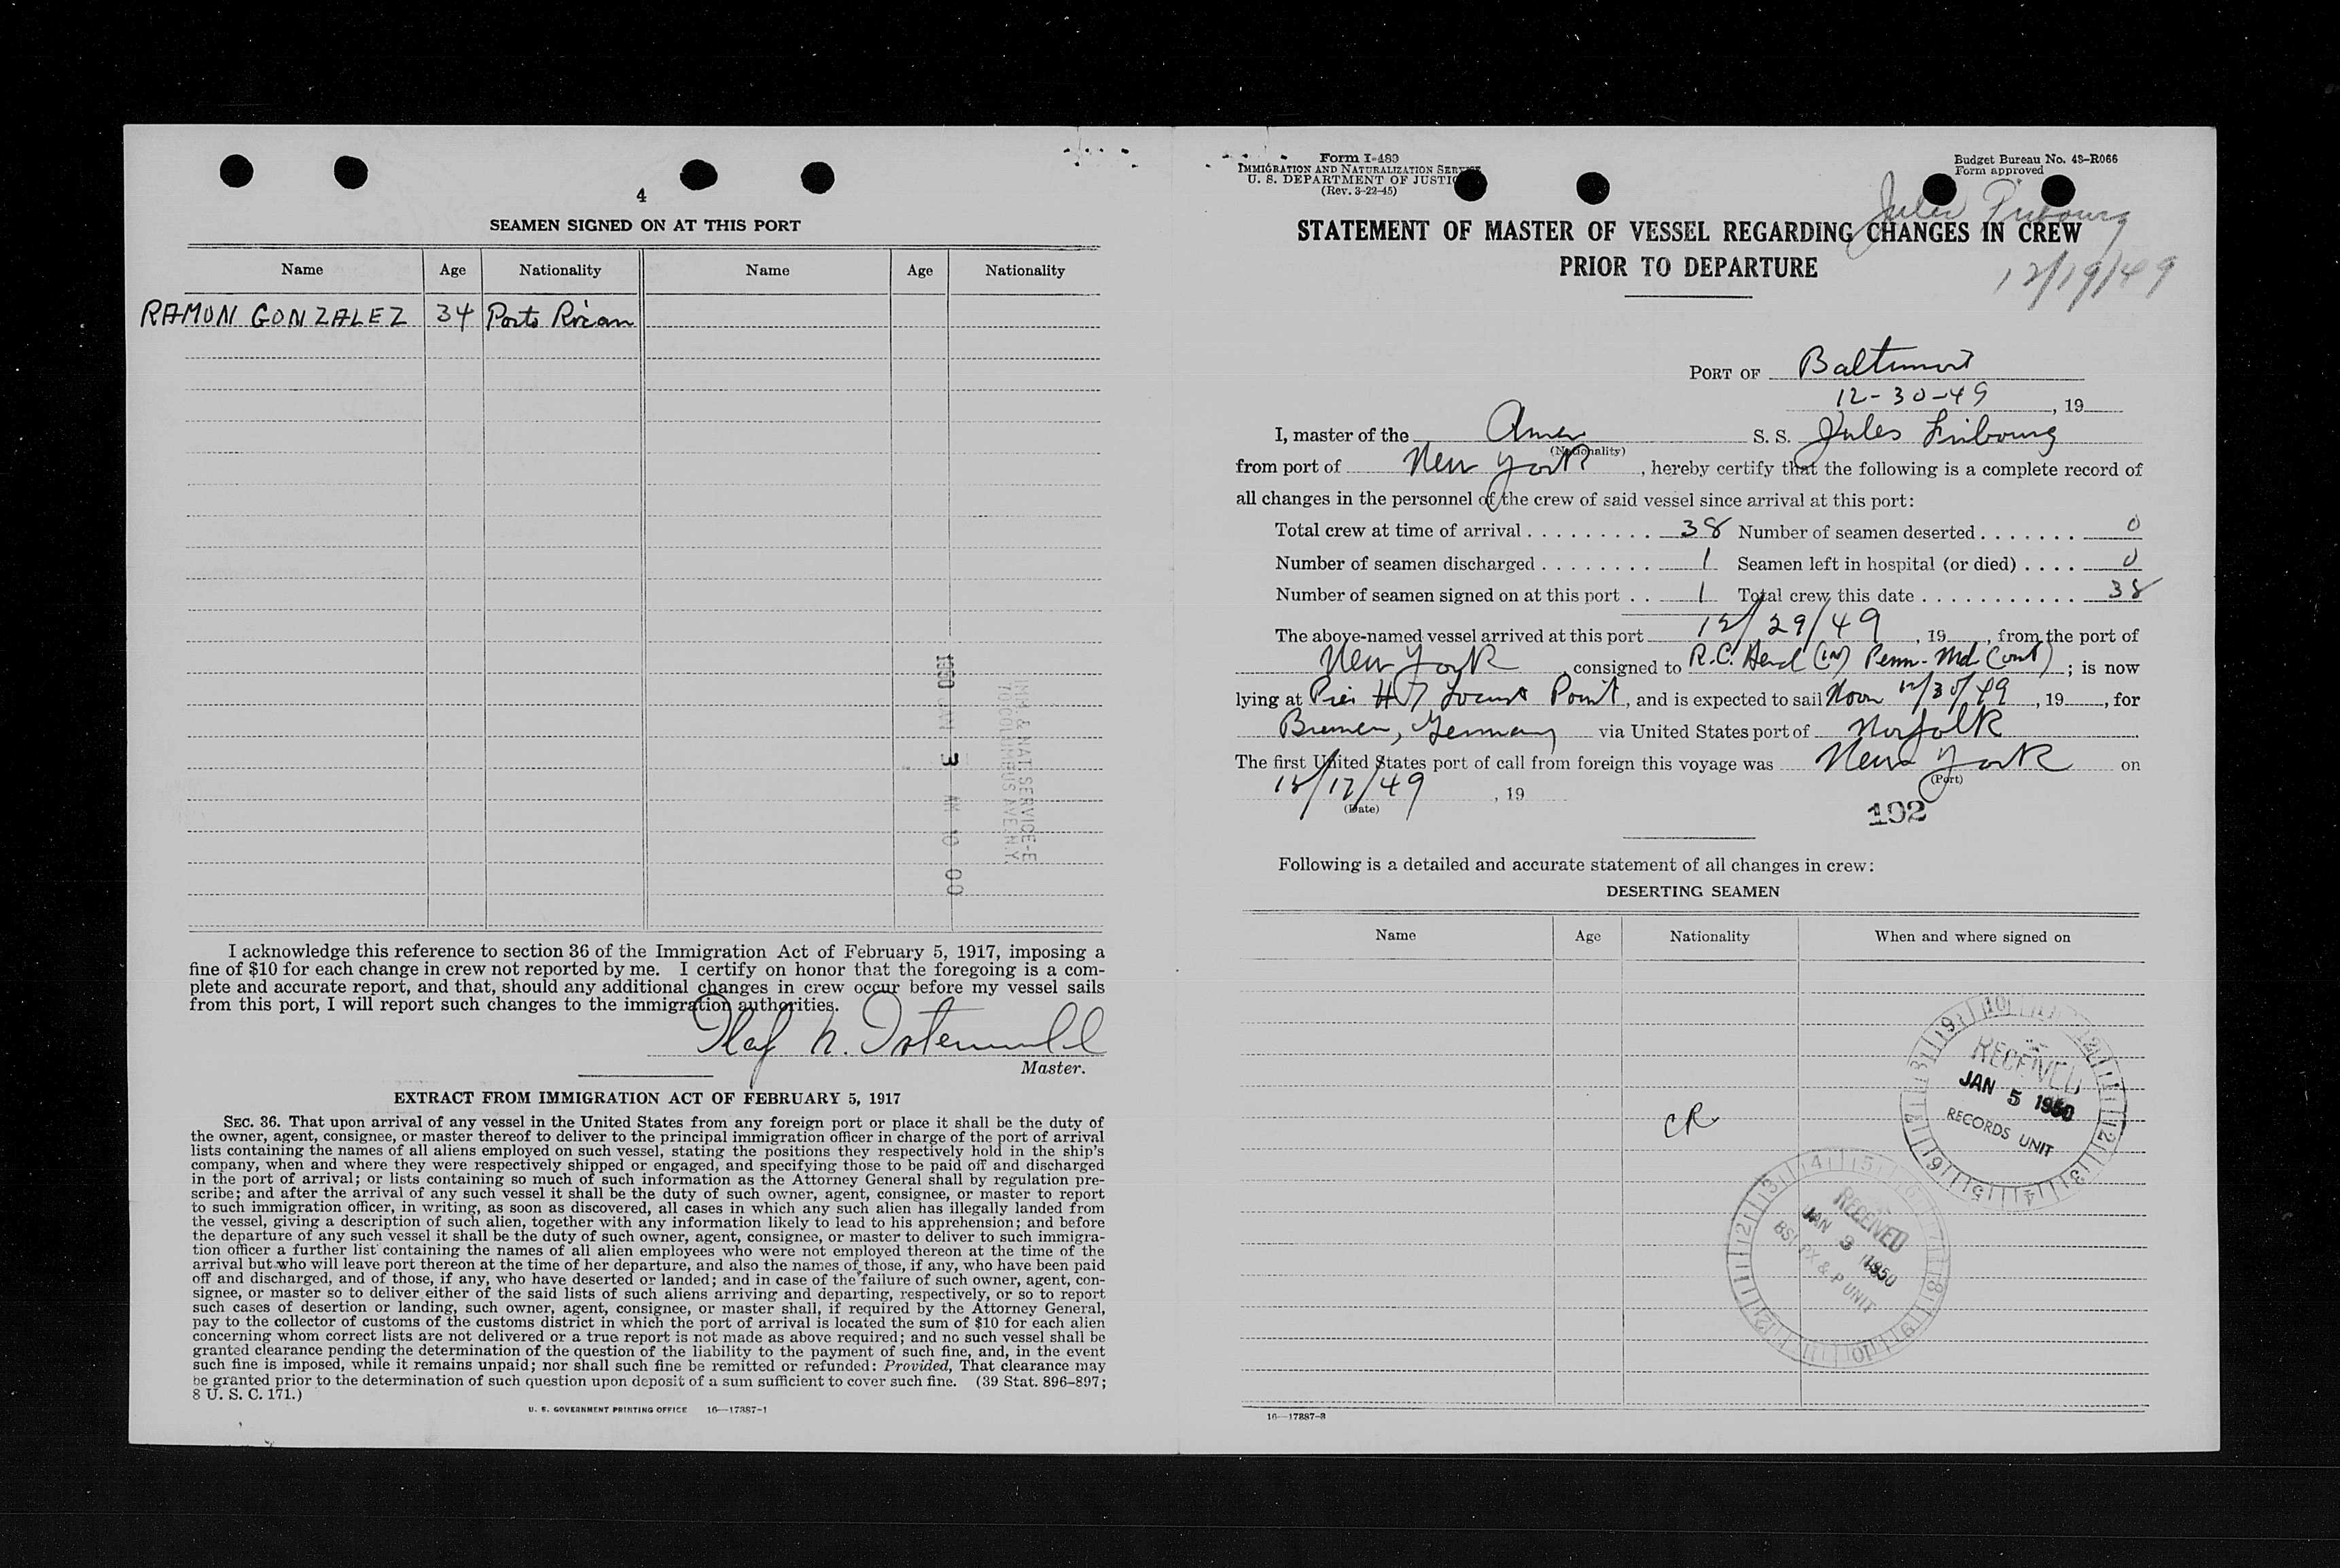 4
SEAMEN SIGNED ON AT THIS PORT
Name Age Nationality Name Age Nationality
RAMON GONZALEZ 34 Porto Rican
1950 JAN 3 AM 10 00
IMM & NAT. SERVICE-E
70 COLUMBUS AVE. N.Y.
I acknowledge this reference to section 36 of the Immigration Act of February 5, 1917, imposing a
fine of $10 for each change in crew not reported by me. I certify on honor that the foregoing is a com-
plete and accurate report, and that, should any additional changes in crew occur before my vessel sails
from this port, I will report such changes to the immigration authorities.
Olaf N.
Master.
EXTRACT FROM IMMIGRATION ACT OF FEBRUARY 5, 1917
SEC. 36. That upon arrival of any vessel in the United States from any foreign port or place it shall be the duty of
the owner, agent, consignee, or master thereof to deliver to the principal immigration officer in charge of the port of arrival
lists containing the names of all aliens employed on such vessel, stating the positions they respectively hold in the ship's
company, when and where they were respectively shipped or engaged, and specifying those to be paid off and discharged
in the port of arrival; or lists containing so much of such information as the Attorney General shall by regulation pre-
scribe; and after the arrival of any such vessel it shall be the duty of such owner, agent, consignee, or master to report
to such immigration officer, in writing, as soon as discovered, all cases in which any such alien has illegally landed from
the vessel, giving a description of such alien, together with any information likely to lead to his apprehension; and before
the departure of any such vessel it shall be the duty of such owner, agent, consignee, or master to deliver to such immigra-
tion officer a further list containing the names of all alien employees who were not employed thereon at the time of the
arrival but who will leave port thereon at the time of her departure, and also the names of those, if any, who have been paid
off and discharged, and of those, if any, who have deserted or landed; and in case of the failure of such owner, agent, con-
signee, or master so to deliver either of the said lists of such aliens arriving and departing, respectively, or so to report
such cases of desertion or landing, such owner, agent, consignee, or master shall, if required by the Attorney General,
pay to the collector of customs of the customs district in which the port of arrival is located the sum of $10 for each alien
concerning whom correct lists are not delivered or a true report is not made as above required; and no such vessel shall be
granted clearance pending the determination of the question of the liability to the payment of such fine, and, in the event
such fine is imposed, while it remains unpaid; nor shall such fine be remitted or refunded: Provided, That clearance may
be granted prior to the determination of such question upon deposit of a sum sufficient to cover such fine. (39 Stat. 896-897;
8 U. S. C. 171.)
U. S. GOVERNMENT PRINTING OFFICE 16—17387-1
Form I-489
IMMIGRATION AND NATURALIZATION SERVICE
U. S. DEPARTMENT OF JUSTICE
(Rev. 3-22-45)
Budget Bureau No. 43-R066
Form approved
Jules Fribourg
12/19/49
STATEMENT OF MASTER OF VESSEL REGARDING CHANGES IN CREW
PRIOR TO DEPARTURE
PORT OF Baltimore
12-30-49, 19
I, master of the Amer S. S. Jules Fribourg
(Nationality)
from port of New York, hereby certify that the following is a complete record of
all changes in the personnel of the crew of said vessel since arrival at this port:
Total crew at time of arrival . . . . . . . . . . 38 Number of seamen deserted . . . . . . . 0
Number of seamen discharged . . . . . . . . 1 Seamen left in hospital (or died) . . . . 0
Number of seamen signed on at this port . . 1 Total crew this date . . . . . . . . . . . . 38
The above-named vessel arrived at this port 12/29/49, 19, from the port of
New York, consigned to R.C. Herd (in) Penn-Md (out); is now
lying at Pier #7 Locust Point, and is expected to sail Noon 12/30/49, 19, for
Bremen, Germany via United States port of Norfolk
The first United States port of call from foreign this voyage was New York on
(Port)
12/17/49, 19
(Date)
192
Following is a detailed and accurate statement of all changes in crew:
DESERTING SEAMEN
Name Age Nationality When and where signed on
CR
RECEIVED
JAN 5 1950
RECORDS UNIT
RECEIVED
JAN 3 1950
BSI PX & P UNIT
16—17387-3